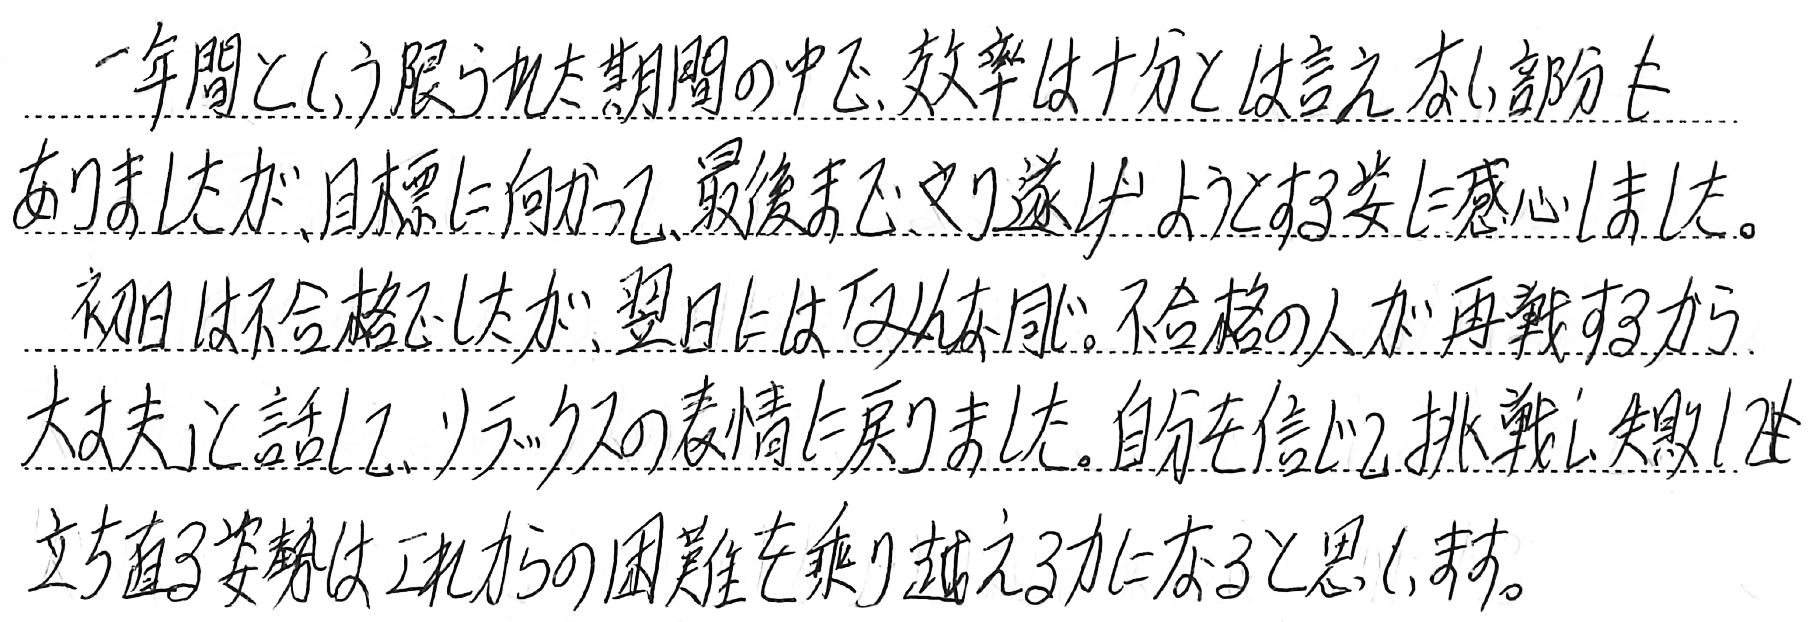 一年間という限られた期間の中で、効率は十分とは言えない部分も
ありましたが、目標に向かって、最後までやり遂げようとする姿に感心しました。
初日は不合格でしたが、翌日には「みんな同じ。不合格の人が再戦するから
大丈夫」と話して、リラックスの表情に戻りました。自分を信じて挑戦し、失敗しても
立ち直る姿勢はこれからの困難を乗り越える力になると思います。